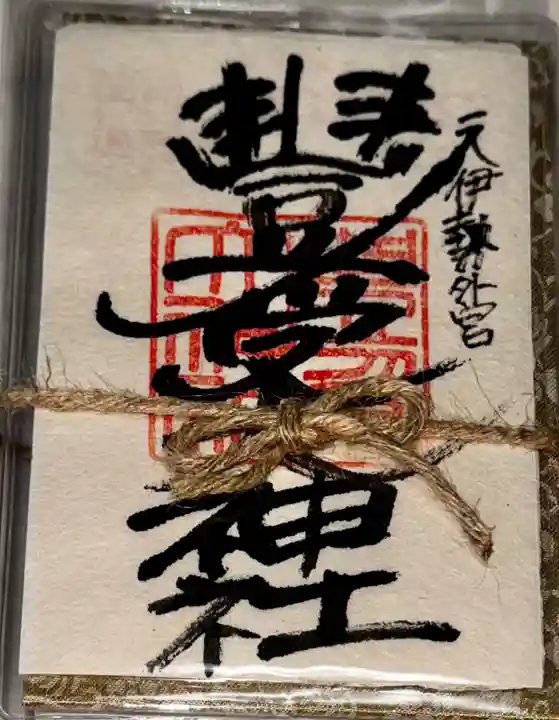 元伊勢外宮
豊受神社